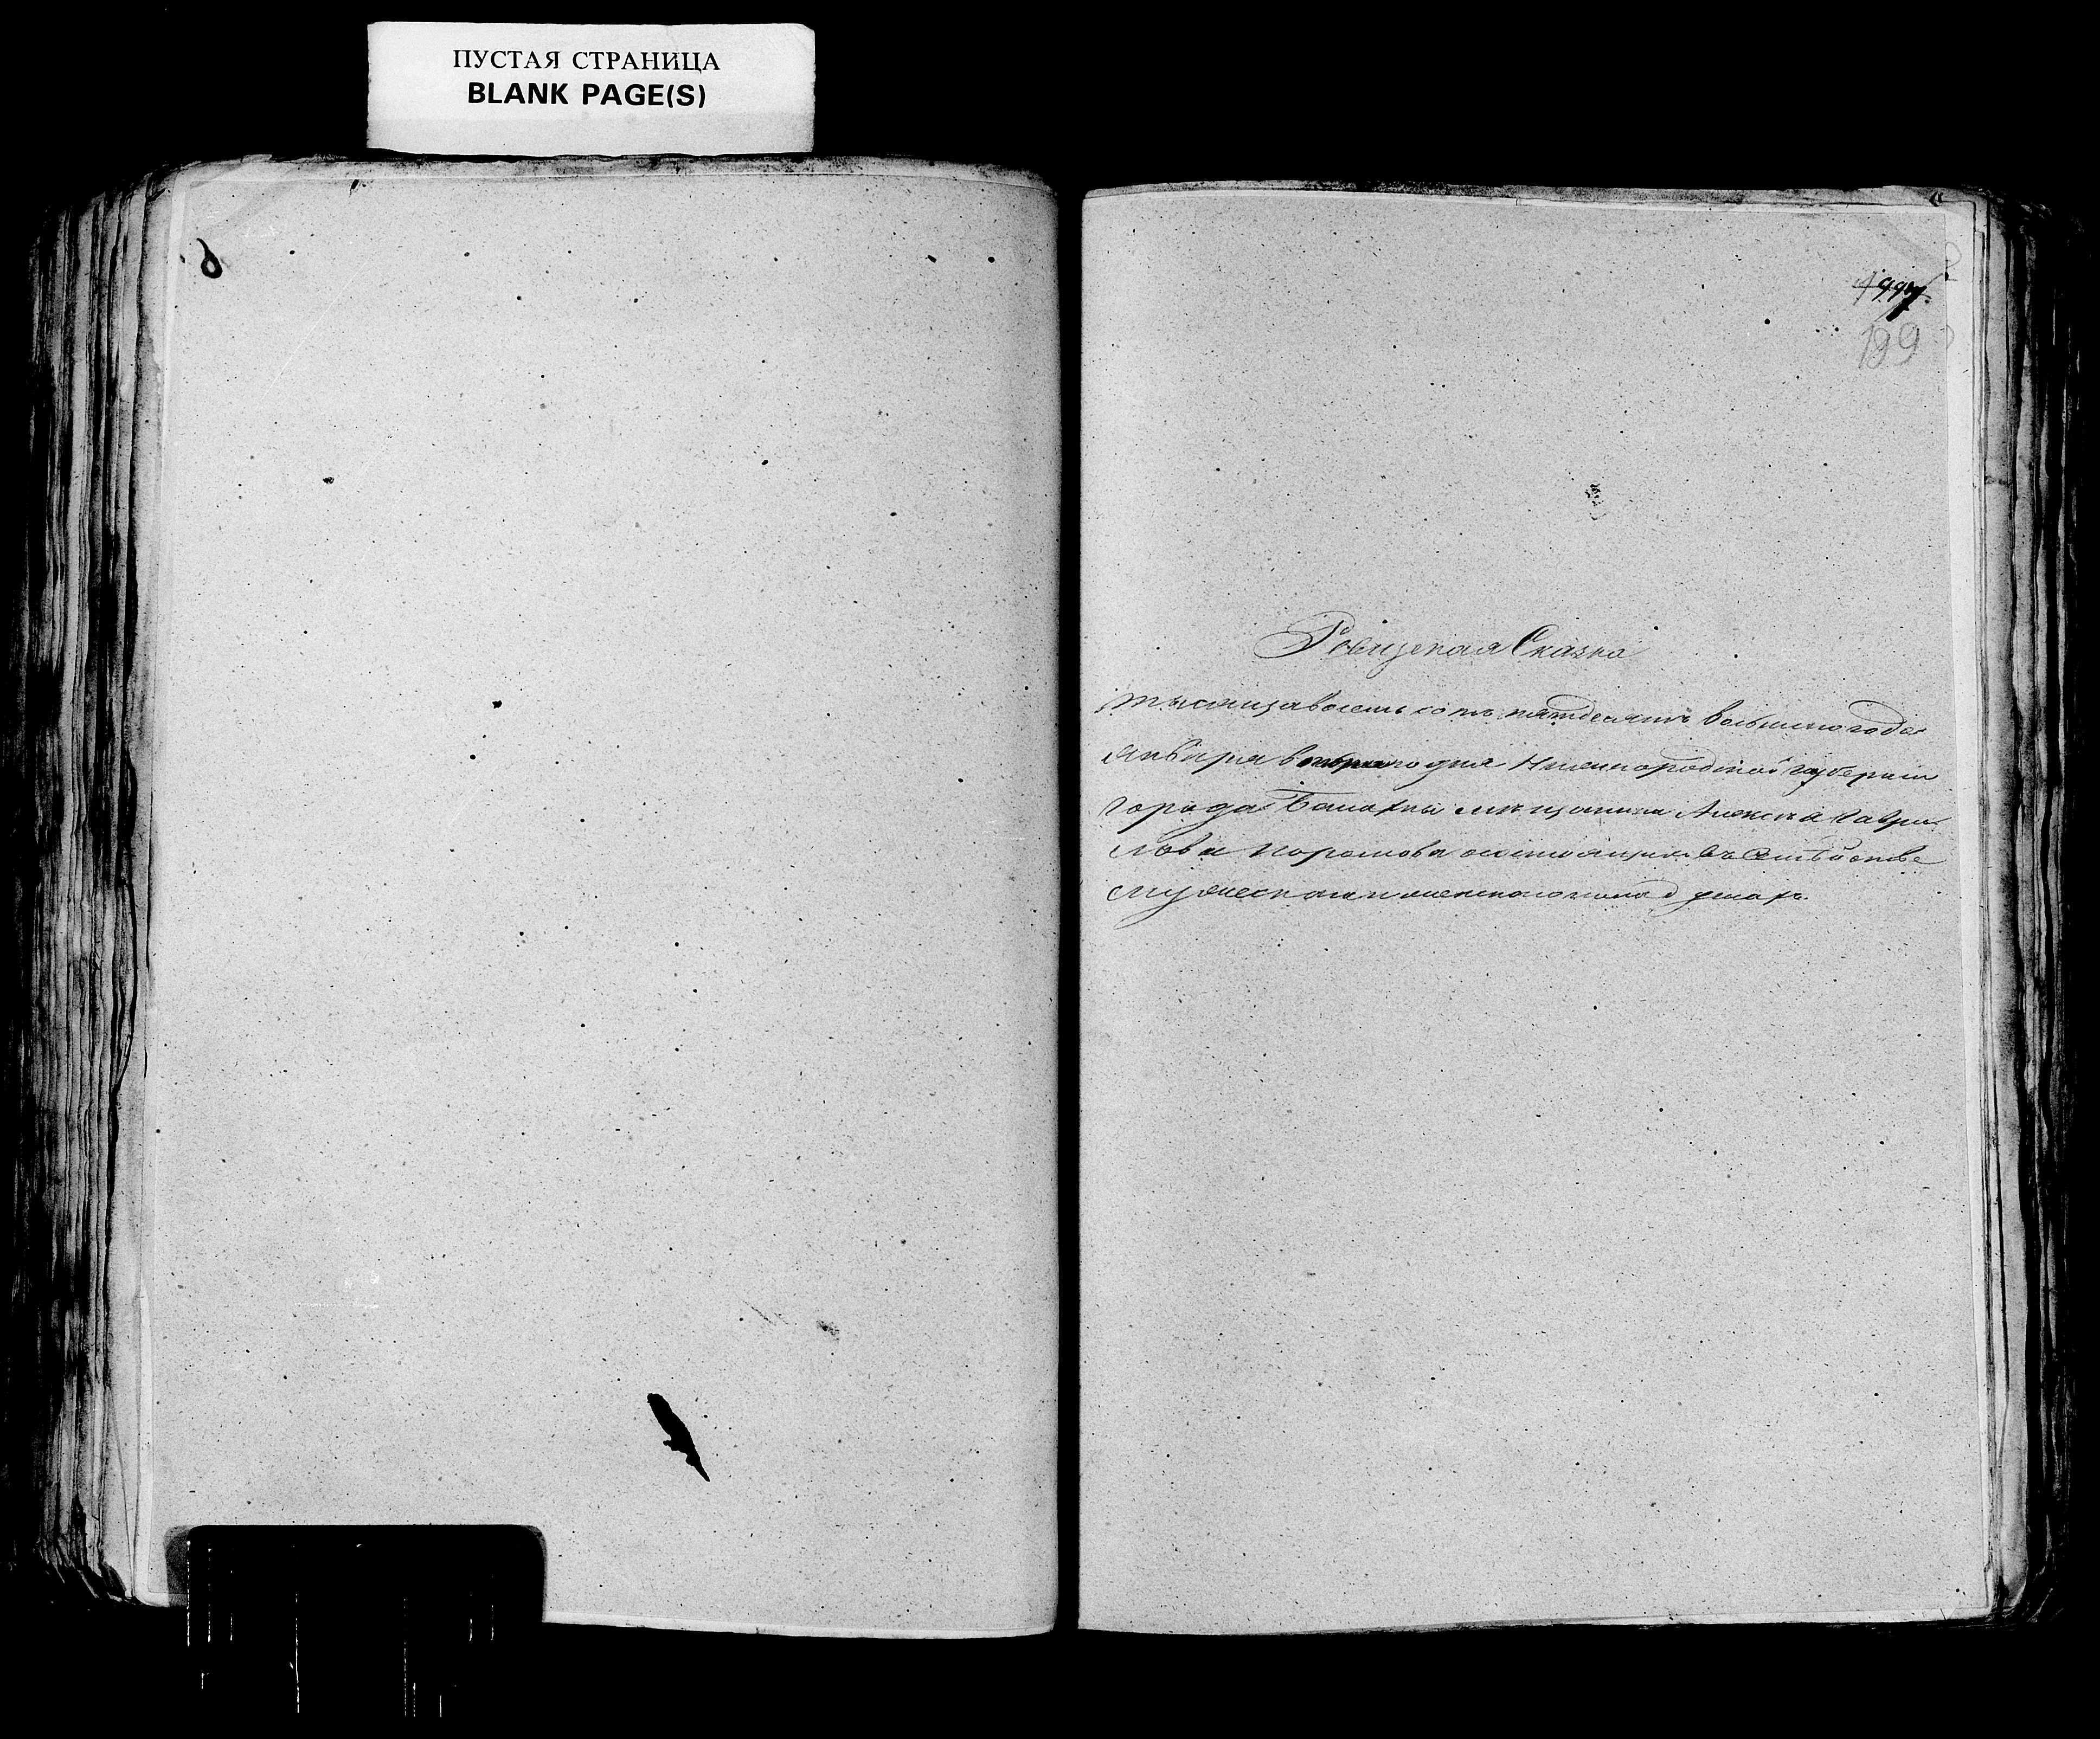 ПУСТАЯ СТРАНИЦА
BLANK PAGE(S)
199
Ревизская Сказка
тысяща восемь сотъ пятдесятъ восьмаго года
Января дня Нижегородской губернии
города Балахны мещанина Алексея Гаври-
лова состоящих въ Семействе
мужеска и женска пола душахъ